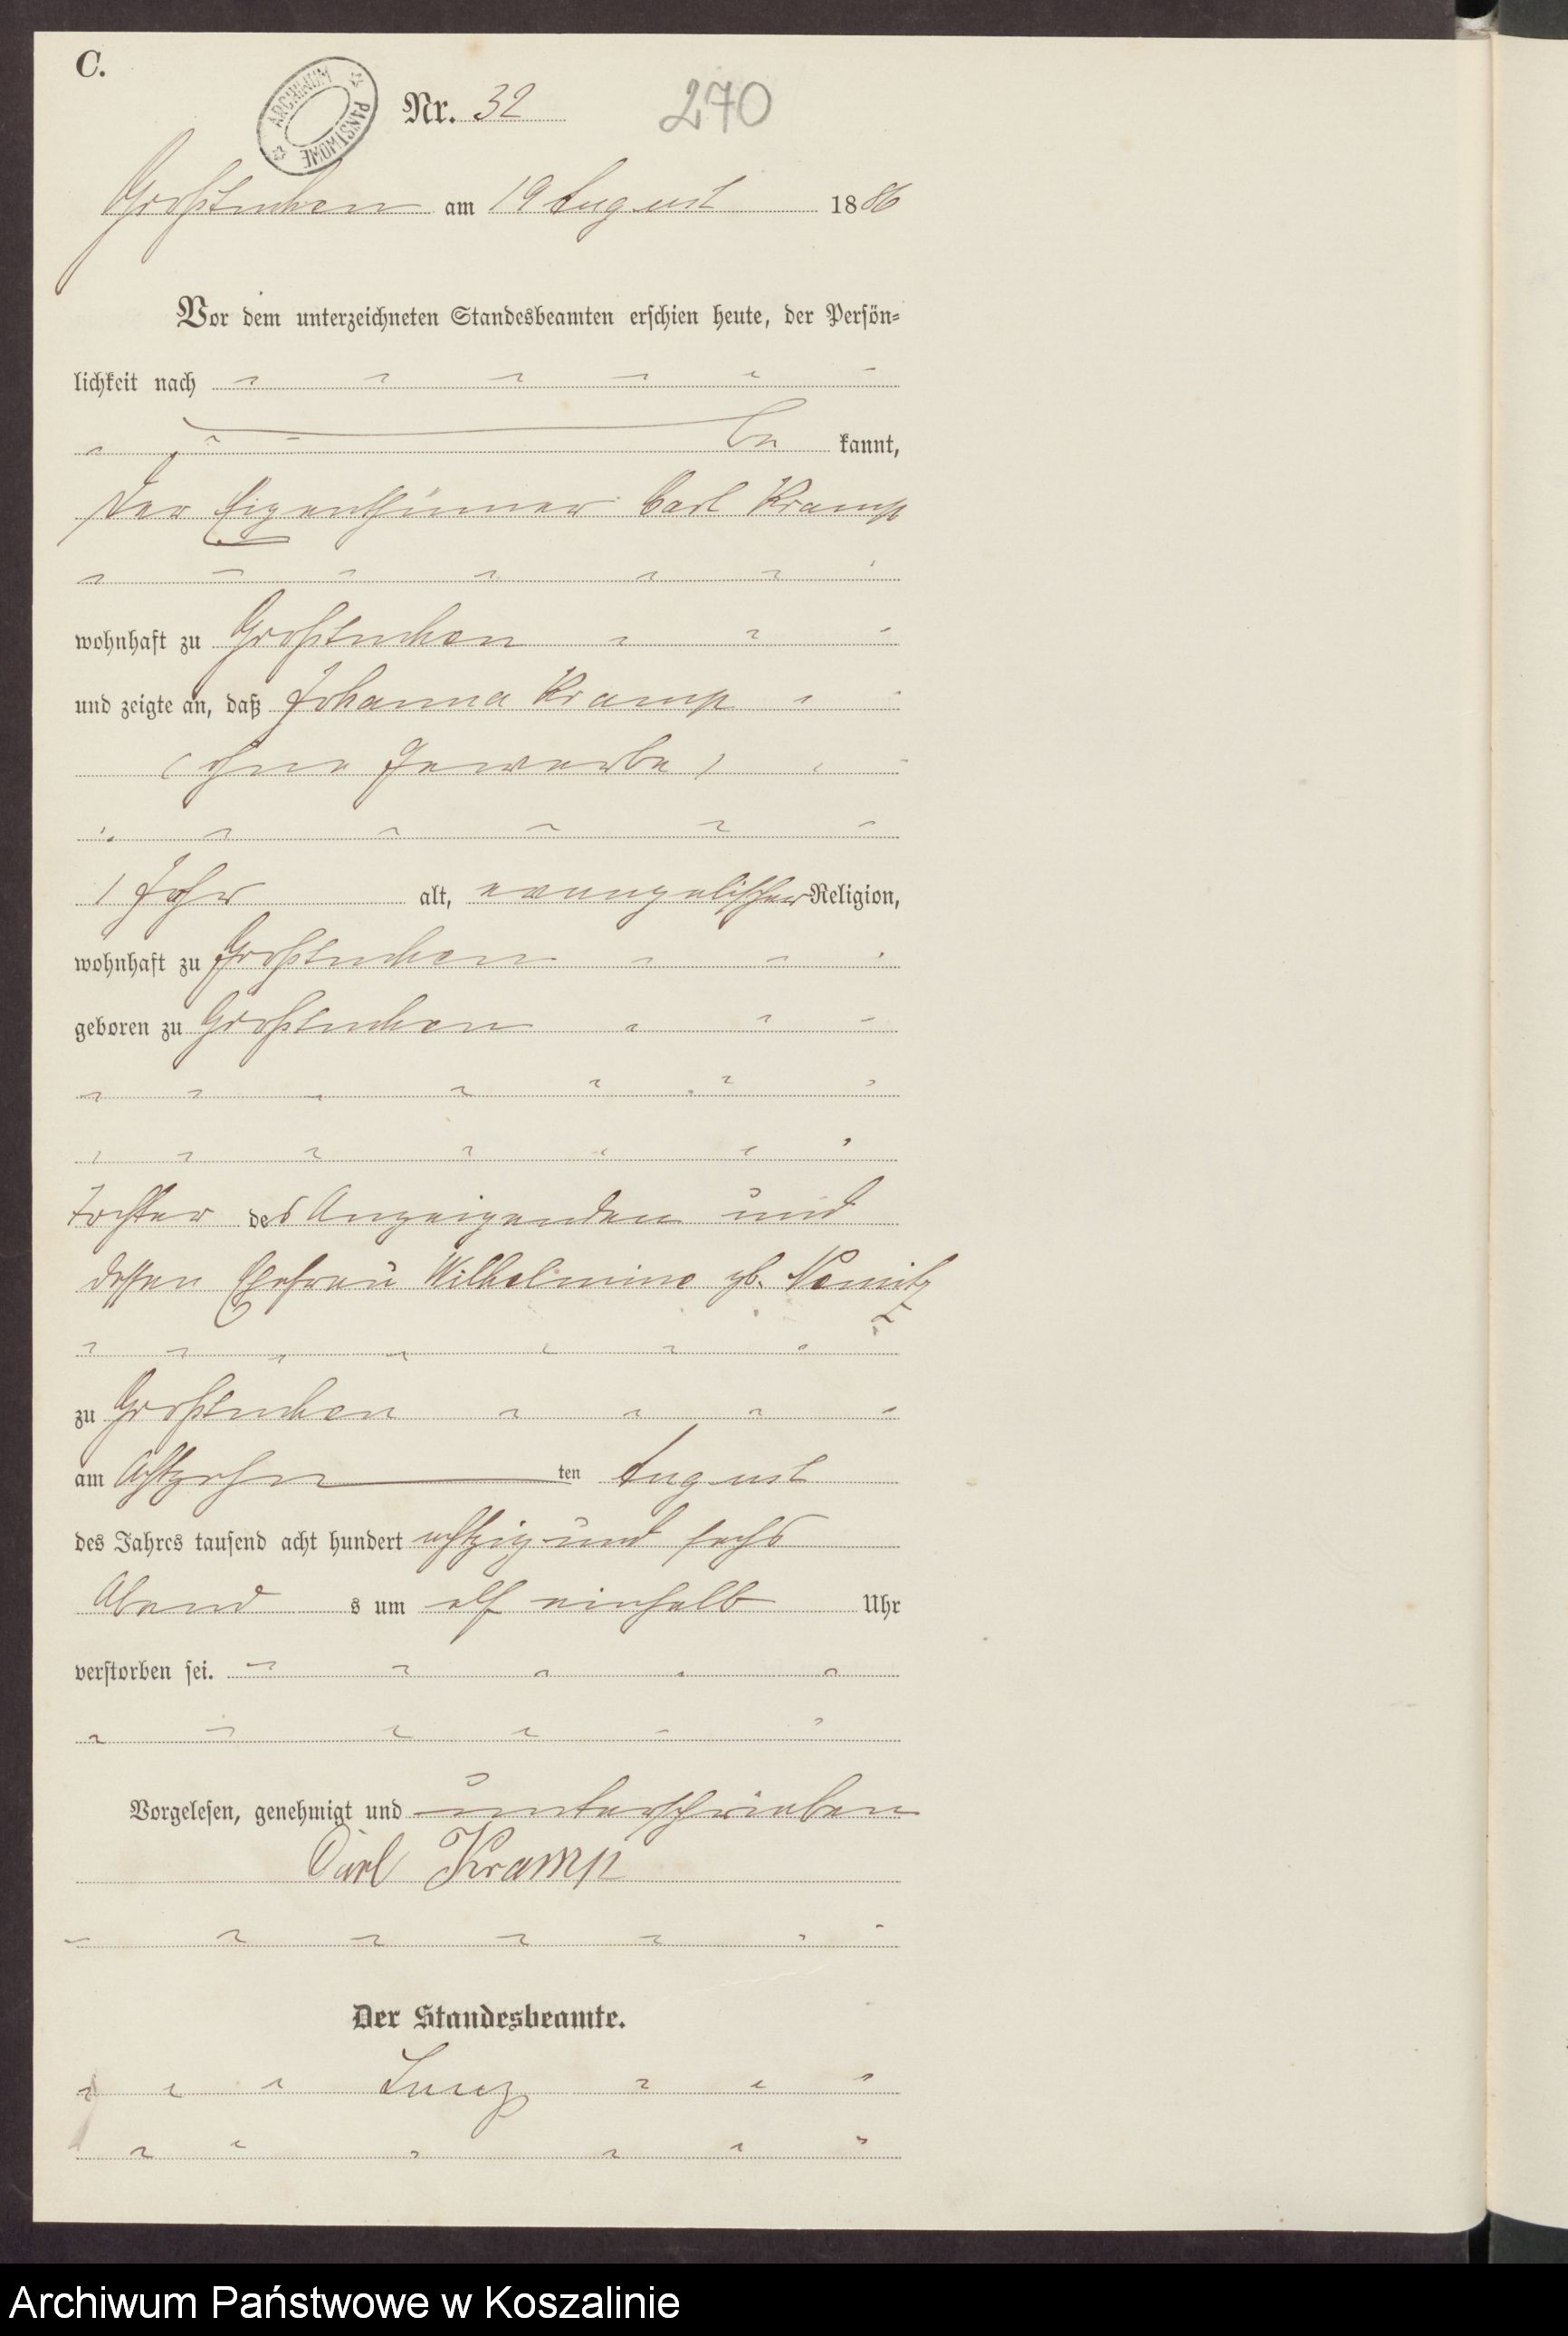 C.
ARCHIWUM PAŃSTWOWE
Nr. 32
270
Großtuchen am 19 August 1886
Vor dem unterzeichneten Standesbeamten erschien heute, der Persön-
lichkeit nach
be kannt,
der Eigenthümer Carl Kramp
wohnhaft zu Großtuchen
und zeigte an, daß Johanna Kramp
(ohne Gewerbe)
1 Jahr alt, evangelischer Religion,
wohnhaft zu Großtuchen
geboren zu Großtuchen
Tochter des Anzeigenden und
dessen Ehefrau Wilhelmine gb. Nemitz
zu Großtuchen
am Achtzehn ten August
des Jahres tausend acht hundert achtzig und sechs
Abend s um elf einhalb Uhr
verstorben sei.
Vorgelesen, genehmigt und unterschrieben
Carl Kramp
Der Standesbeamte.
Archiwum Państwowe w Koszalinie